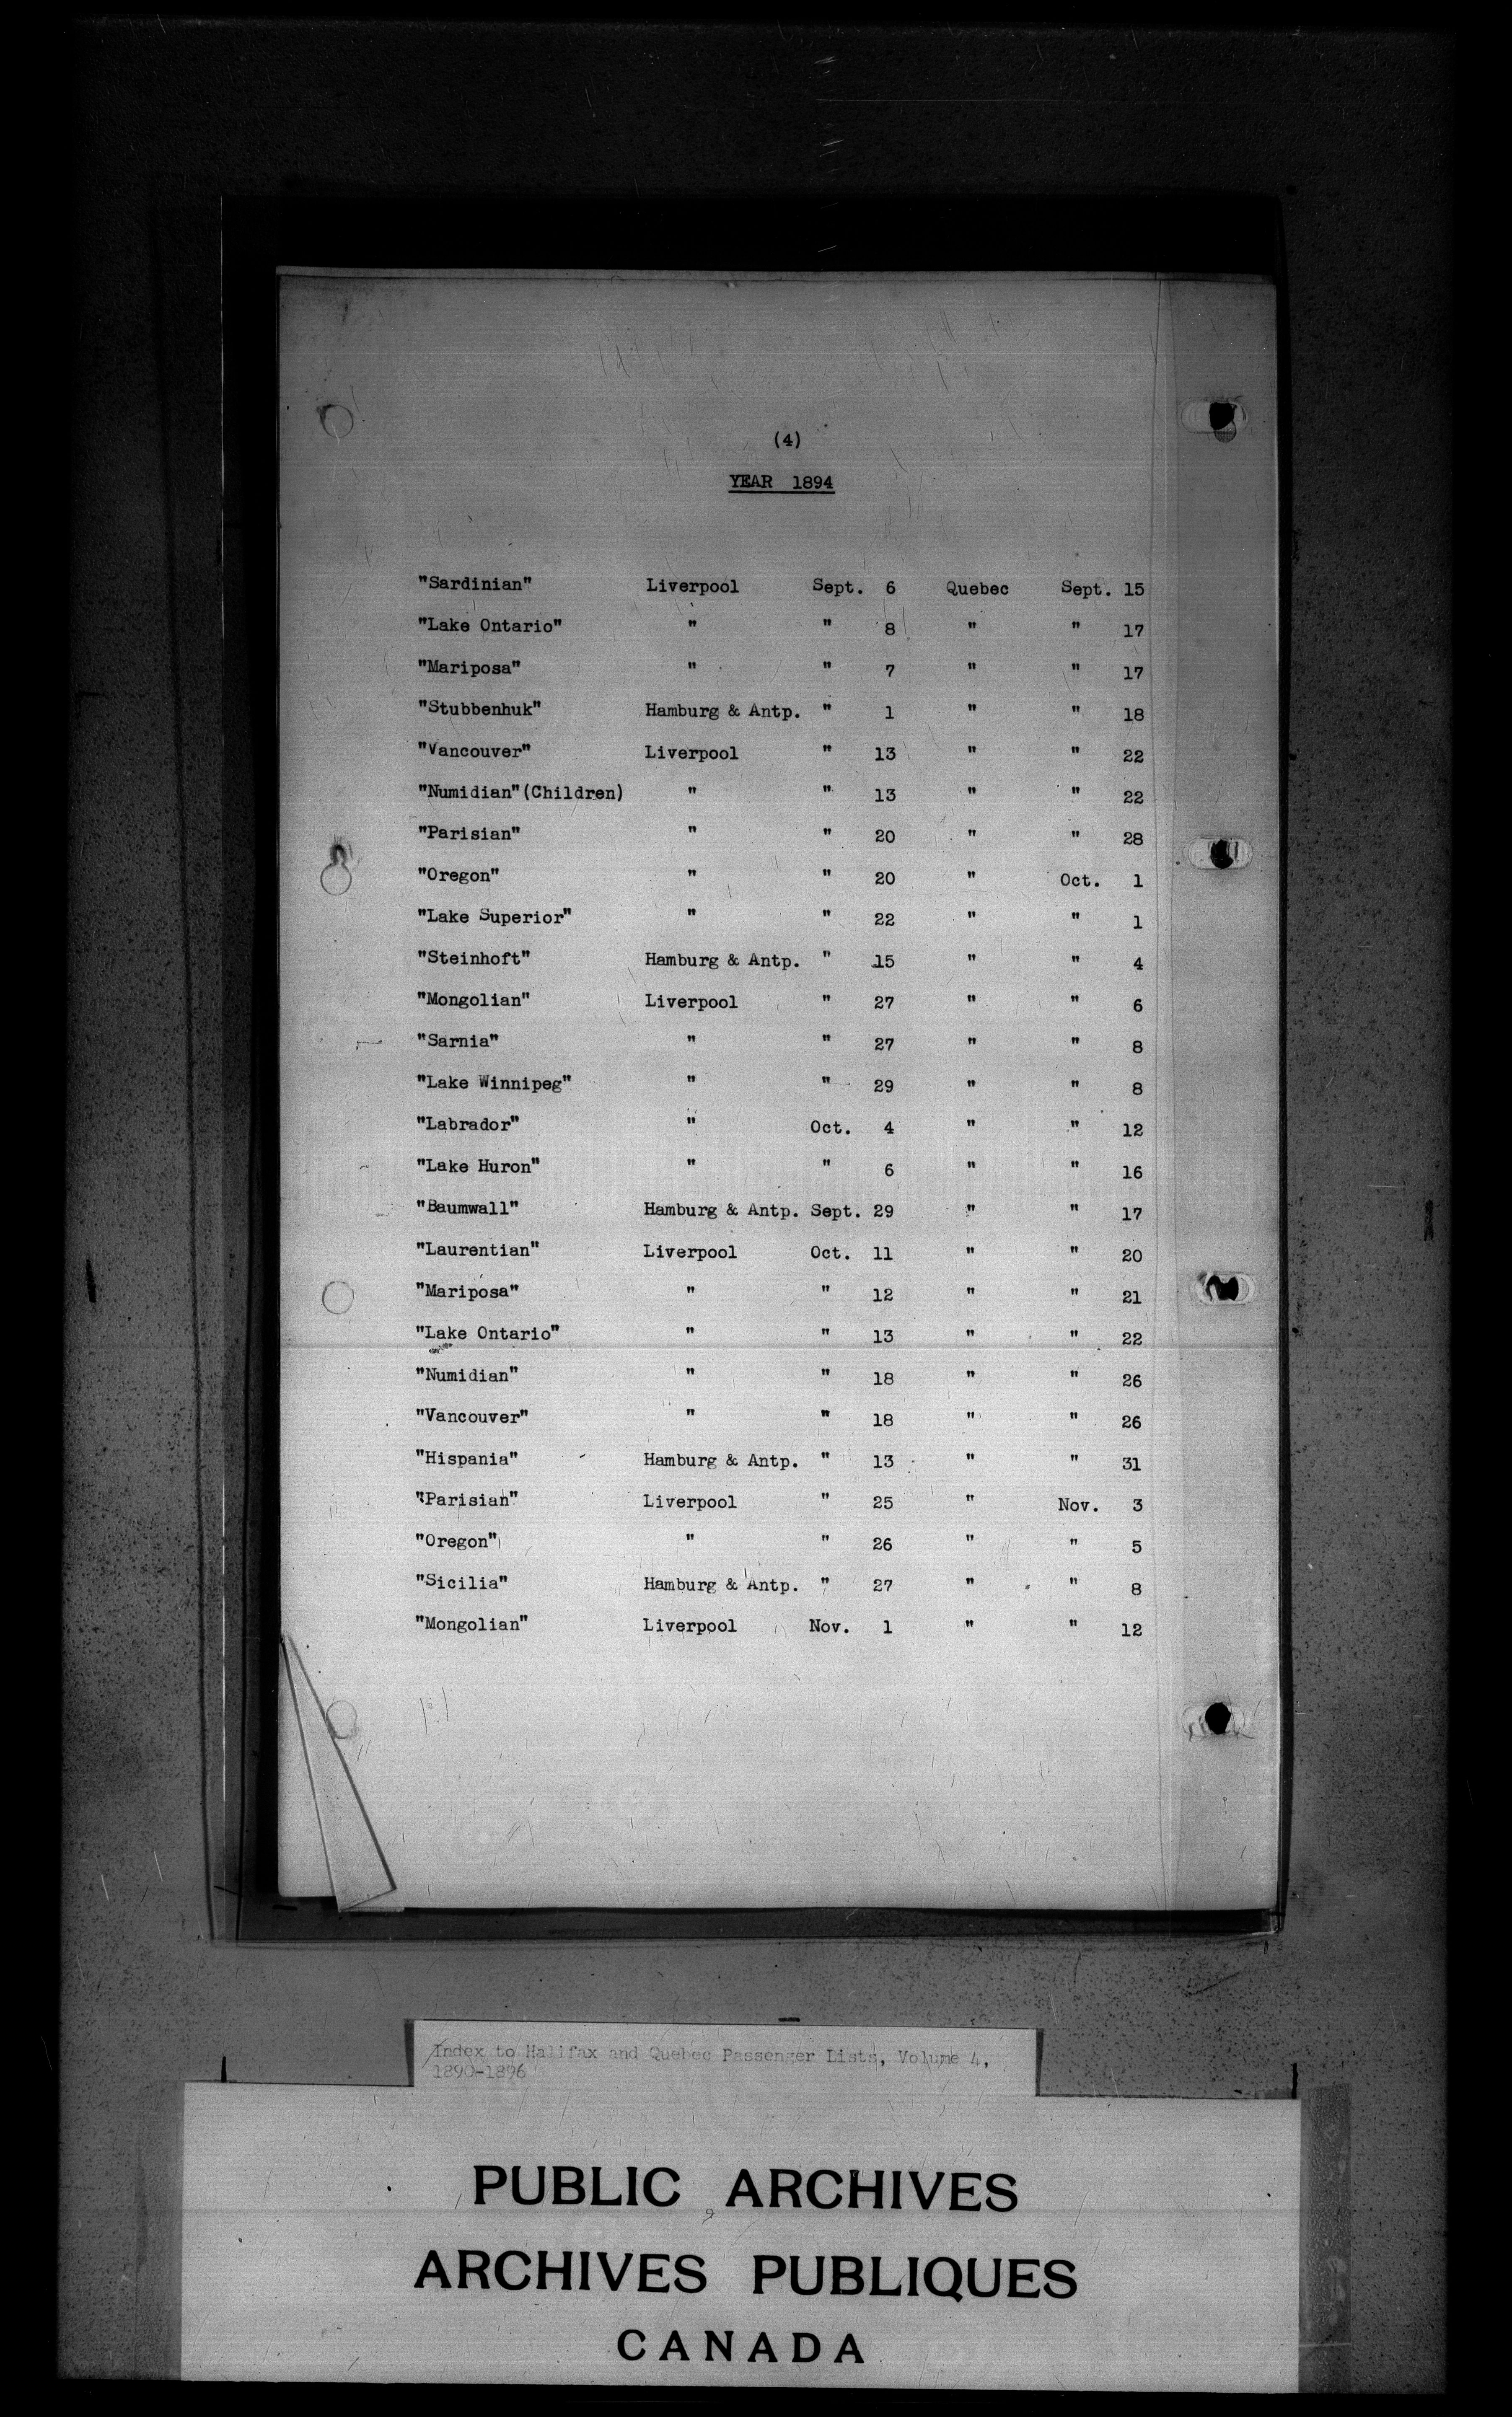 (4)
YEAR 1894
"Sardinian" Liverpool Sept. 6 Quebec Sept. 15
"Lake Ontario" " " 8 " " 17
"Mariposa" " " 7 " " 17
"Stubbenhuk" Hamburg & Antp. " 1 " " 18
"Vancouver" Liverpool " 13 " " 22
"Numidian" (Children) " " 13 " " 22
"Parisian" " " 20 " " 28
"Oregon" " " 20 " Oct. 1
"Lake Superior" " " 22 " " 1
"Steinhoft" Hamburg & Antp. " 15 " " 4
"Mongolian" Liverpool " 27 " " 6
"Sarnia" " " 27 " " 8
"Lake Winnipeg" " " 29 " " 8
"Labrador" " Oct. 4 " " 12
"Lake Huron" " " 6 " " 16
"Baumwall" Hamburg & Antp. Sept. 29 " " 17
"Laurentian" Liverpool Oct. 11 " " 20
"Mariposa" " " 12 " " 21
"Lake Ontario" " " 13 " " 22
"Numidian" " " 18 " " 26
"Vancouver" " " 18 " " 26
"Hispania" Hamburg & Antp. " 13 " " 31
"Parisian" Liverpool " 25 " Nov. 3
"Oregon" " " 26 " " 5
"Sicilia" Hamburg & Antp. " 27 " " 8
"Mongolian" Liverpool Nov. 1 " " 12
Index to Halifax and Quebec Passenger Lists, Volume 4,
1890-1896
PUBLIC ARCHIVES
ARCHIVES PUBLIQUES
CANADA